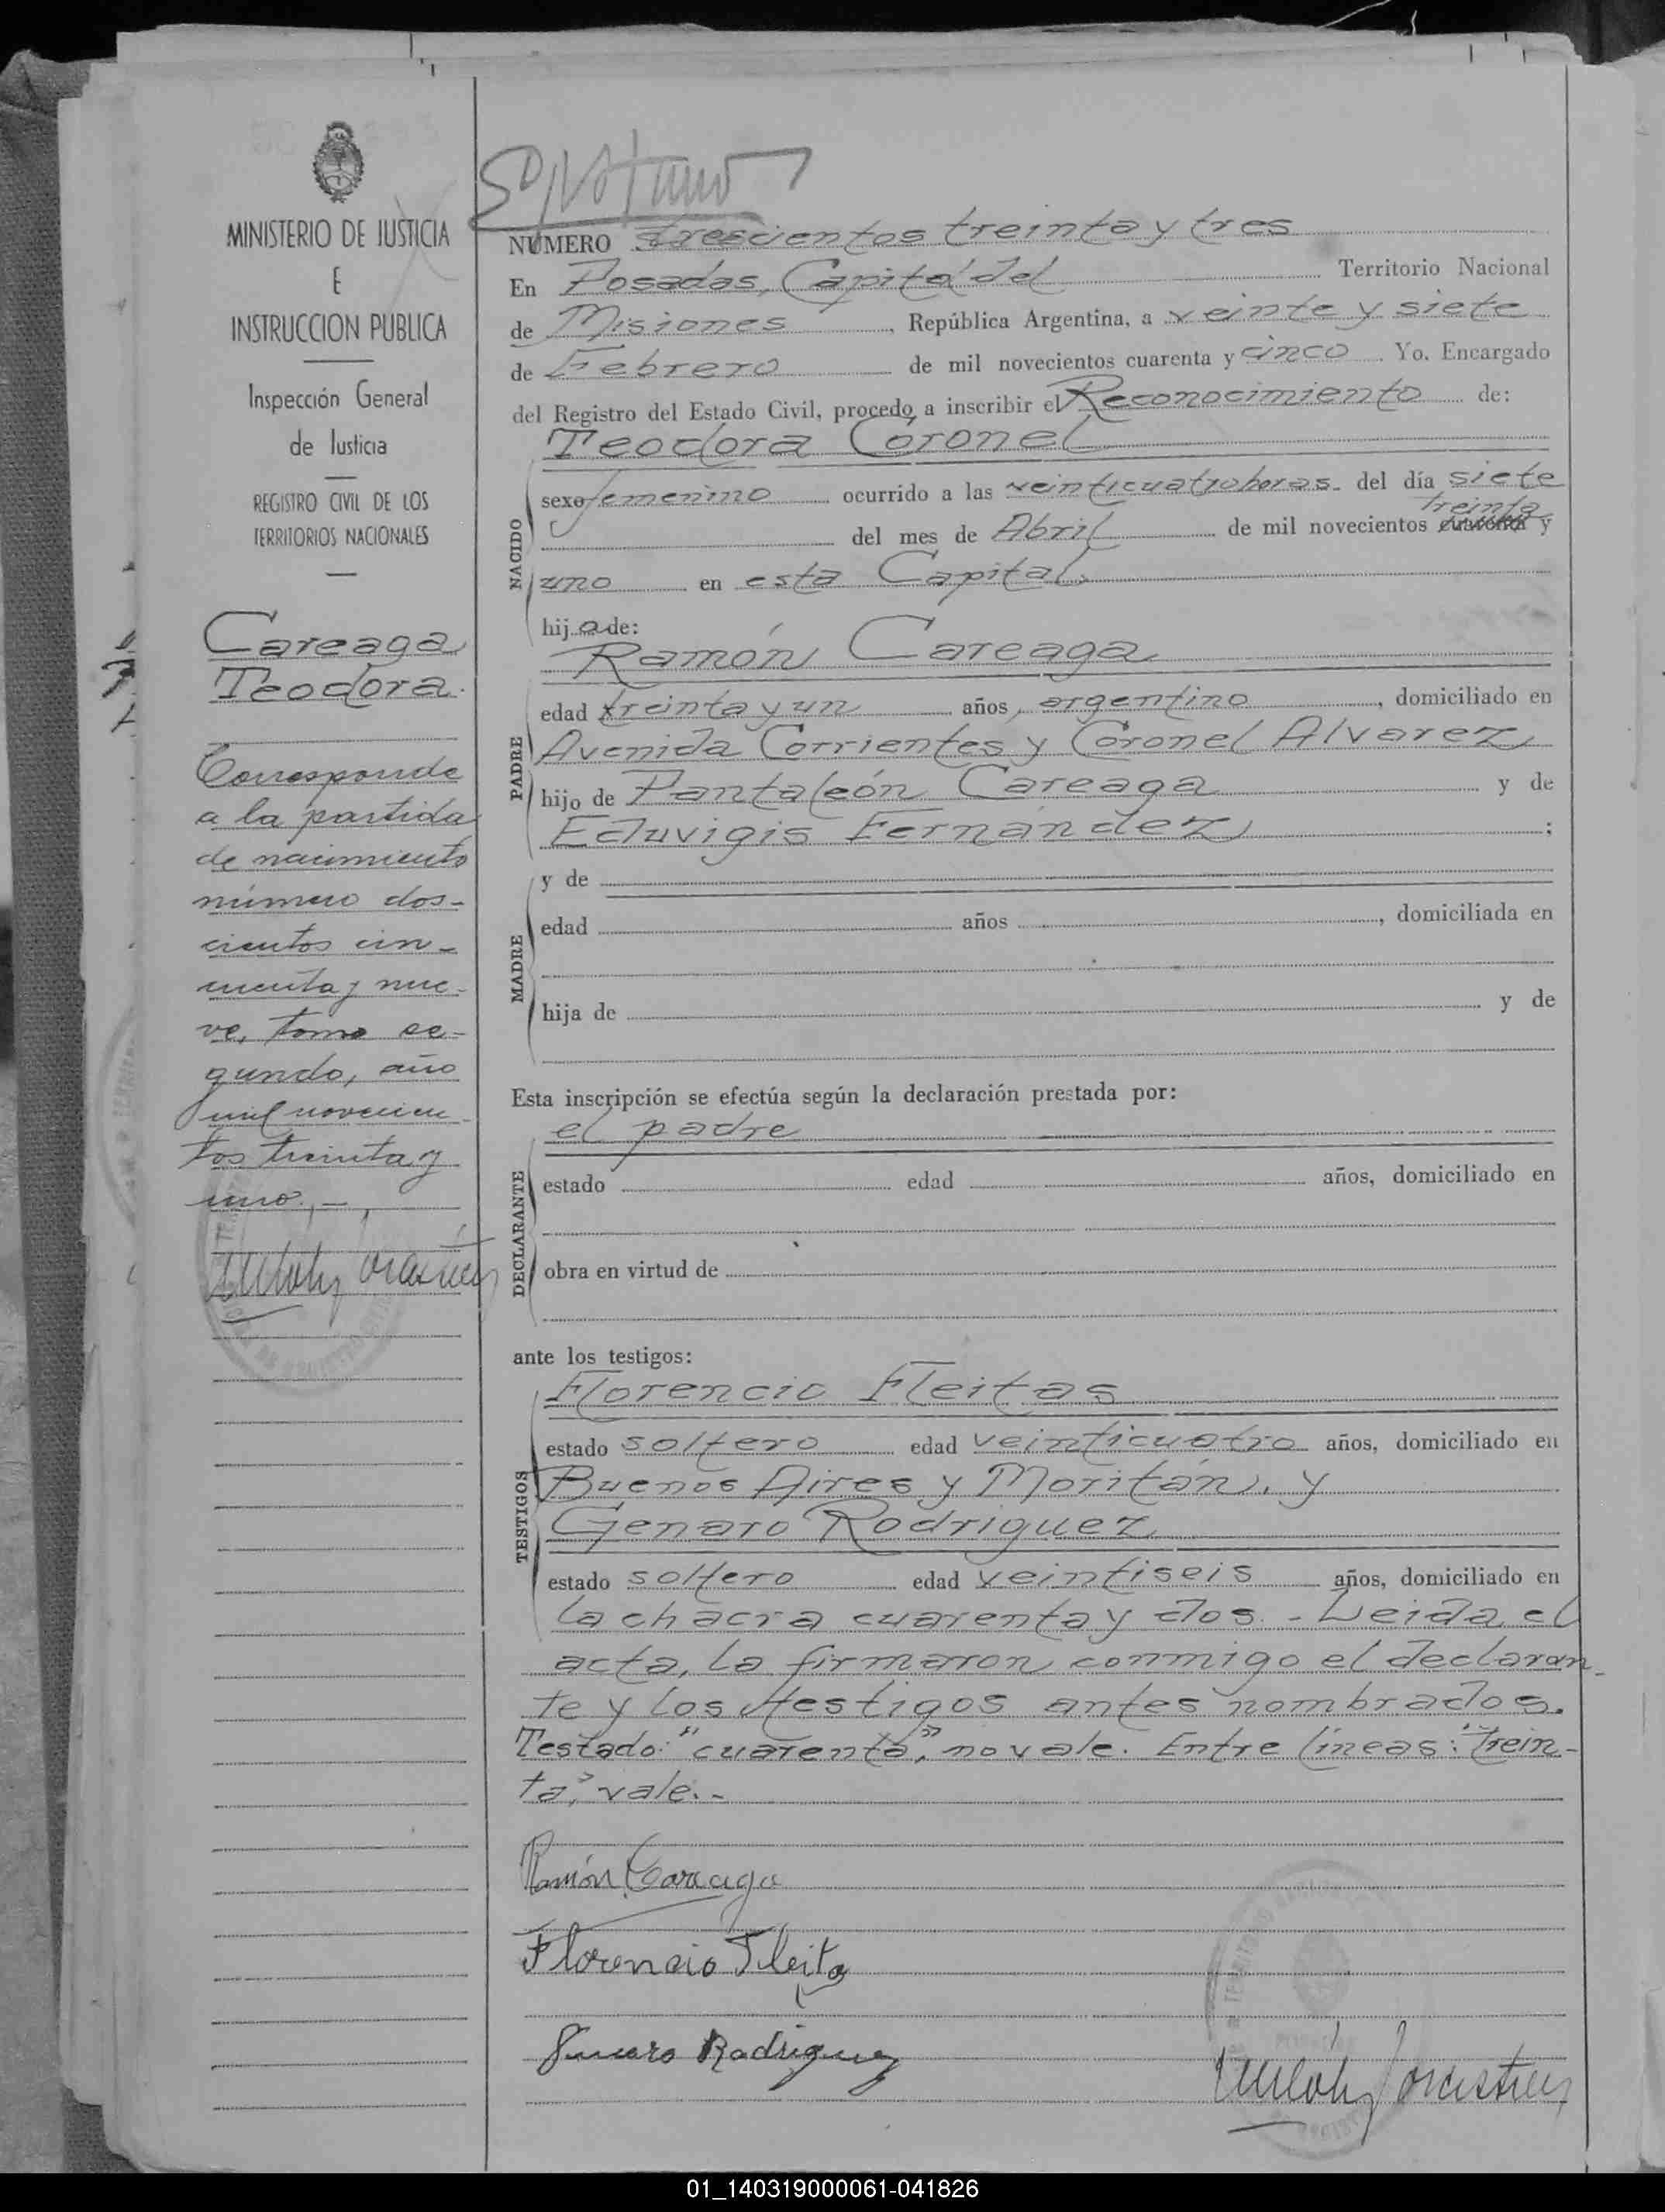 MINISTERIO DE JUSTICIA
E
INSTRUCCION PUBLICA
Inspección General
de Justicia
REGISTRO CIVIL DE LOS
TERRITORIOS NACIONALES
Careaga
Teodora.
Corresponde
a la partida
de nacimiento
número dos-
cientos cin-
cuenta y nue-
ve, tomo se-
gundo, año
mil novecien
tos treinta y
uno.-
NÚMERO trescientos treinta y tres
En Posadas, Capital del Territorio Nacional
de Misiones, República Argentina, a veinte y siete
de Febrero de mil novecientos cuarenta y cinco. Yo. Encargado
del Registro del Estado Civil, procedo a inscribir el Reconocimiento de:
Teodora Coronel
NACIDO
sexo femenino ocurrido a las veinticuatro horas. del día siete
treinta
del mes de Abril de mil novecientos cuarenta y
uno en esta Capital.
hij a de:
Ramón Careaga
PADRE
edad treinta y un años, argentino, domiciliado en
Avenida Corrientes y Coronel Alvarez
hijo de Pantaleón Careaga y de
Eduvigis Fernández;
MADRE
y de
edad años, domiciliada en
hija de y de
Esta inscripción se efectúa según la declaración prestada por:
el padre
DECLARANTE
estado edad años, domiciliado en
obra en virtud de
ante los testigos:
Florencio Fleitas
TESTIGOS
estado soltero edad veinticuatro años, domiciliado en
Buenos Aires y Moritán. y
Genaro Rodriguez
estado soltero edad veintiseis años, domiciliado en
la chacra cuarenta y dos. - Leida el
acta, la firmaron conmigo el declaran-
te y los testigos antes nombrados.
Testado: "cuarenta", no vale. Entre líneas: "trein-
ta", vale.-
Ramón Careaga
Florencio Fleitas
Genaro Rodriguez
01_140319000061-041826